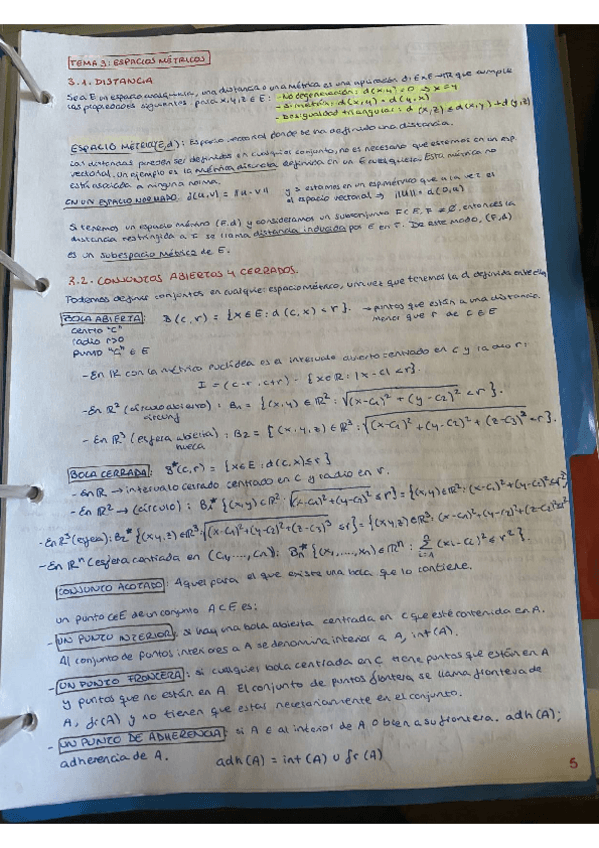 TEMA 3: ESPACIOS MÉTRICOS
3.1. DISTANCIA
Sea E un espacio cualquiera, una distancia o una métrica es una aplicación d: ExE→IR que cumple
las propiedades siguientes para x,y,z ∈ E: - No degeneración: d(x,y)=0 ⇔ x=y
- Simetría: d(x,y) = d(y,x)
- Desigualdad triangular: d(x,z) ≤ d(x,y) + d(y,z)
ESPACIO MÉTRICO (E,d): Espacio vectorial donde se ha definido una distancia.
Las distancias pueden ser definidas en cualquier conjunto, no es necesario que estemos en un esp.
vectorial. Un ejemplo es la métrica discreta definida en un E cualquiera. Esta métrica no
está asociada a ninguna norma.
EN UN ESPACIO NORMADO: d(u,v) = ||u-v|| y si estamos en un esp métrico que a la vez es
espacio vectorial → ||u|| = d(0,u)
Si tenemos un espacio métrico (E,d) y consideramos un subconjunto F⊂E, F≠Ø, entonces la
distancia restringida a F se llama distancia inducida por E en F. De este modo, (F,d)
es un subespacio métrico de E.
3.2. CONJUNTOS ABIERTOS Y CERRADOS.
Podemos definir conjuntos en cualquier espacio métrico, una vez que tenemos la d definida
BOLA ABIERTA: B(c,r) = {x∈E: d(c,x) < r}. → puntos que están a una distancia
centro "C" menor que r de c ∈ E
radio r>0
punto "C" ∈ E
- En IR con la métrica euclídea es el intervalo abierto centrado en c y radio r:
I = (c-r, c+r) = {x∈IR: |x-c| < r}.
- En IR² (círculo abierto): B₂ = {(x,y) ∈ IR²: √(x-c₁)² + (y-c₂)² < r}.
- En IR³ (esfera abierta): B₂ = {(x,y,z) ∈ IR³: √(x-c₁)² + (y-c₂)² + (z-c₃)² < r}.
hueca
BOLA CERRADA: B*(c,r) = {x∈E: d(c,x) ≤ r}
- En IR → intervalo cerrado centrado en C y radio en r.
- En IR² → (círculo): B₁* {(x,y) ∈ IR²: √(x-c₁)²+(y-c₂)² ≤ r} = {(x,y) ∈ IR²: (x-c₁)²+(y-c₂)² ≤ r²}
- En IR³ (esfera): B₂* {(x,y,z) ∈ IR³: √(x-c₁)²+(y-c₂)²+(z-c₃)³ ≤ r} = {(x,y,z) ∈ IR³: (x-c₁)²+(y-c₂)²+(z-c₃)² ≤ r²
- En IRⁿ (esfera centrada en (C₁,...,Cn): Bn* {(x₁,...,xn) ∈ IRⁿ: Σ (xi-ci)² ≤ r²}.
CONJUNTO ACOTADO: Aquel para el que existe una bola que lo contiene.
un punto c∈E de un conjunto A⊂E es:
- UN PUNTO INTERIOR: si hay una bola abierta centrada en C que esté contenida en A.
Al conjunto de puntos interiores a A se denomina interior a A, int(A).
- UN PUNTO FRONTERA: si cualquier bola centrada en C tiene puntos que están en A
y puntos que no están en A. El conjunto de puntos frontera se llama frontera de
A, fr(A) y no tienen que estar necesariamente en el conjunto.
- UN PUNTO DE ADHERENCIA: si A ∈ al interior de A o bien a su frontera. adh(A);
adherencia de A. adh(A) = int(A) ∪ fr(A)
5